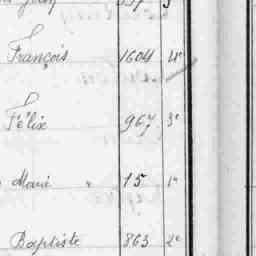 François 1604 4e
Félix 967 3e
Marie " 15 1e
Baptiste 863 2e